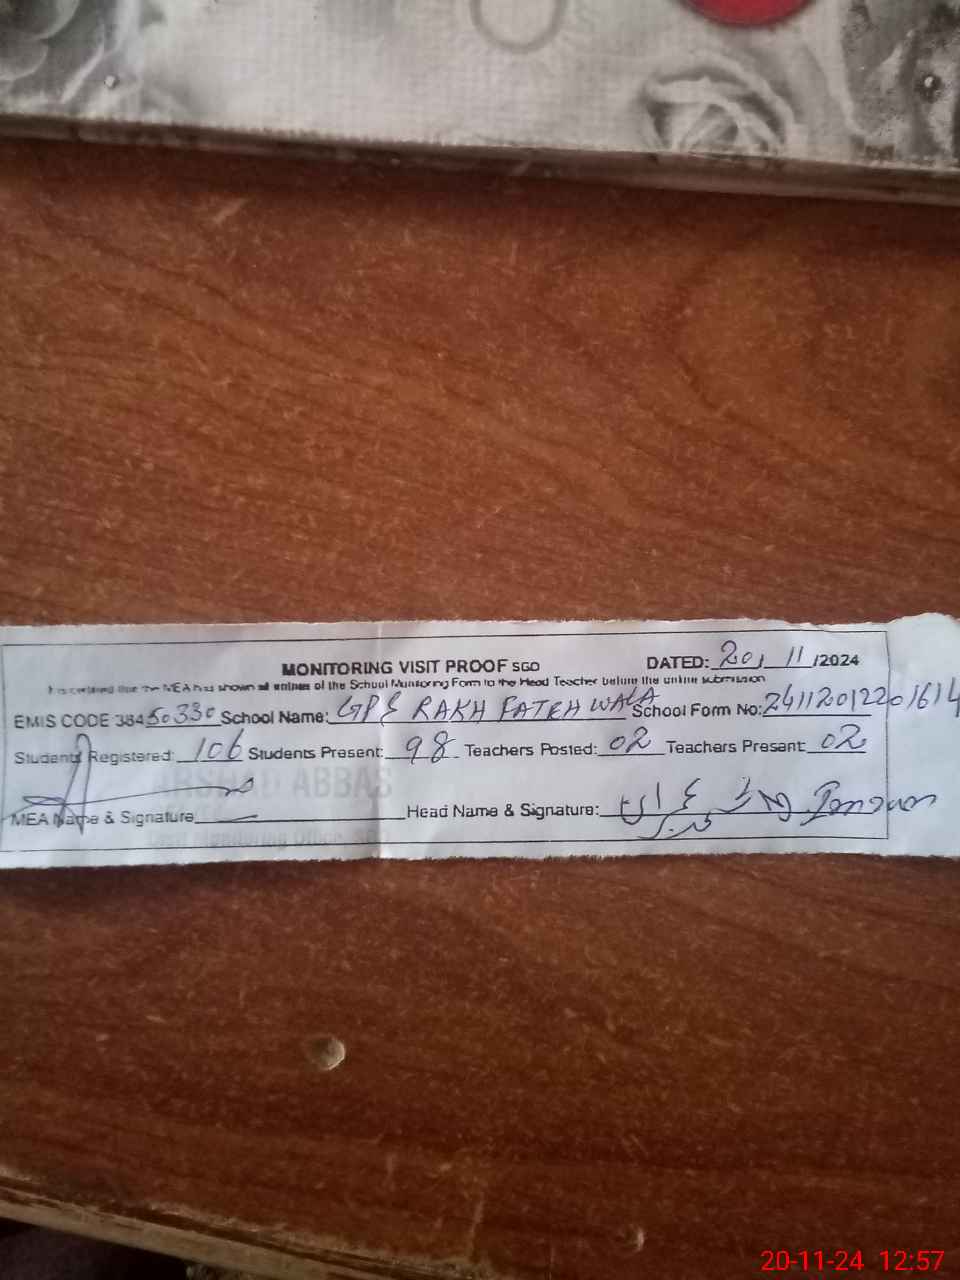 MONITORING VISIT PROOF SGO DATED: 20, 11 /2024
It is certified that the MEA has shown all entries of the School Monitoring Form to the Head Teacher before the online submission
EMIS CODE 384 50330 School Name: GPS RAKH FATEH WALA School Form No: 24112012201614
Students Registered: 106 Students Present: 98 Teachers Posted: 02 Teachers Present: 02
ARSHAD ABBAS
MEA Name & Signature Head Name & Signature:
Distt Monitoring Office, SGD
20-11-24 12:57